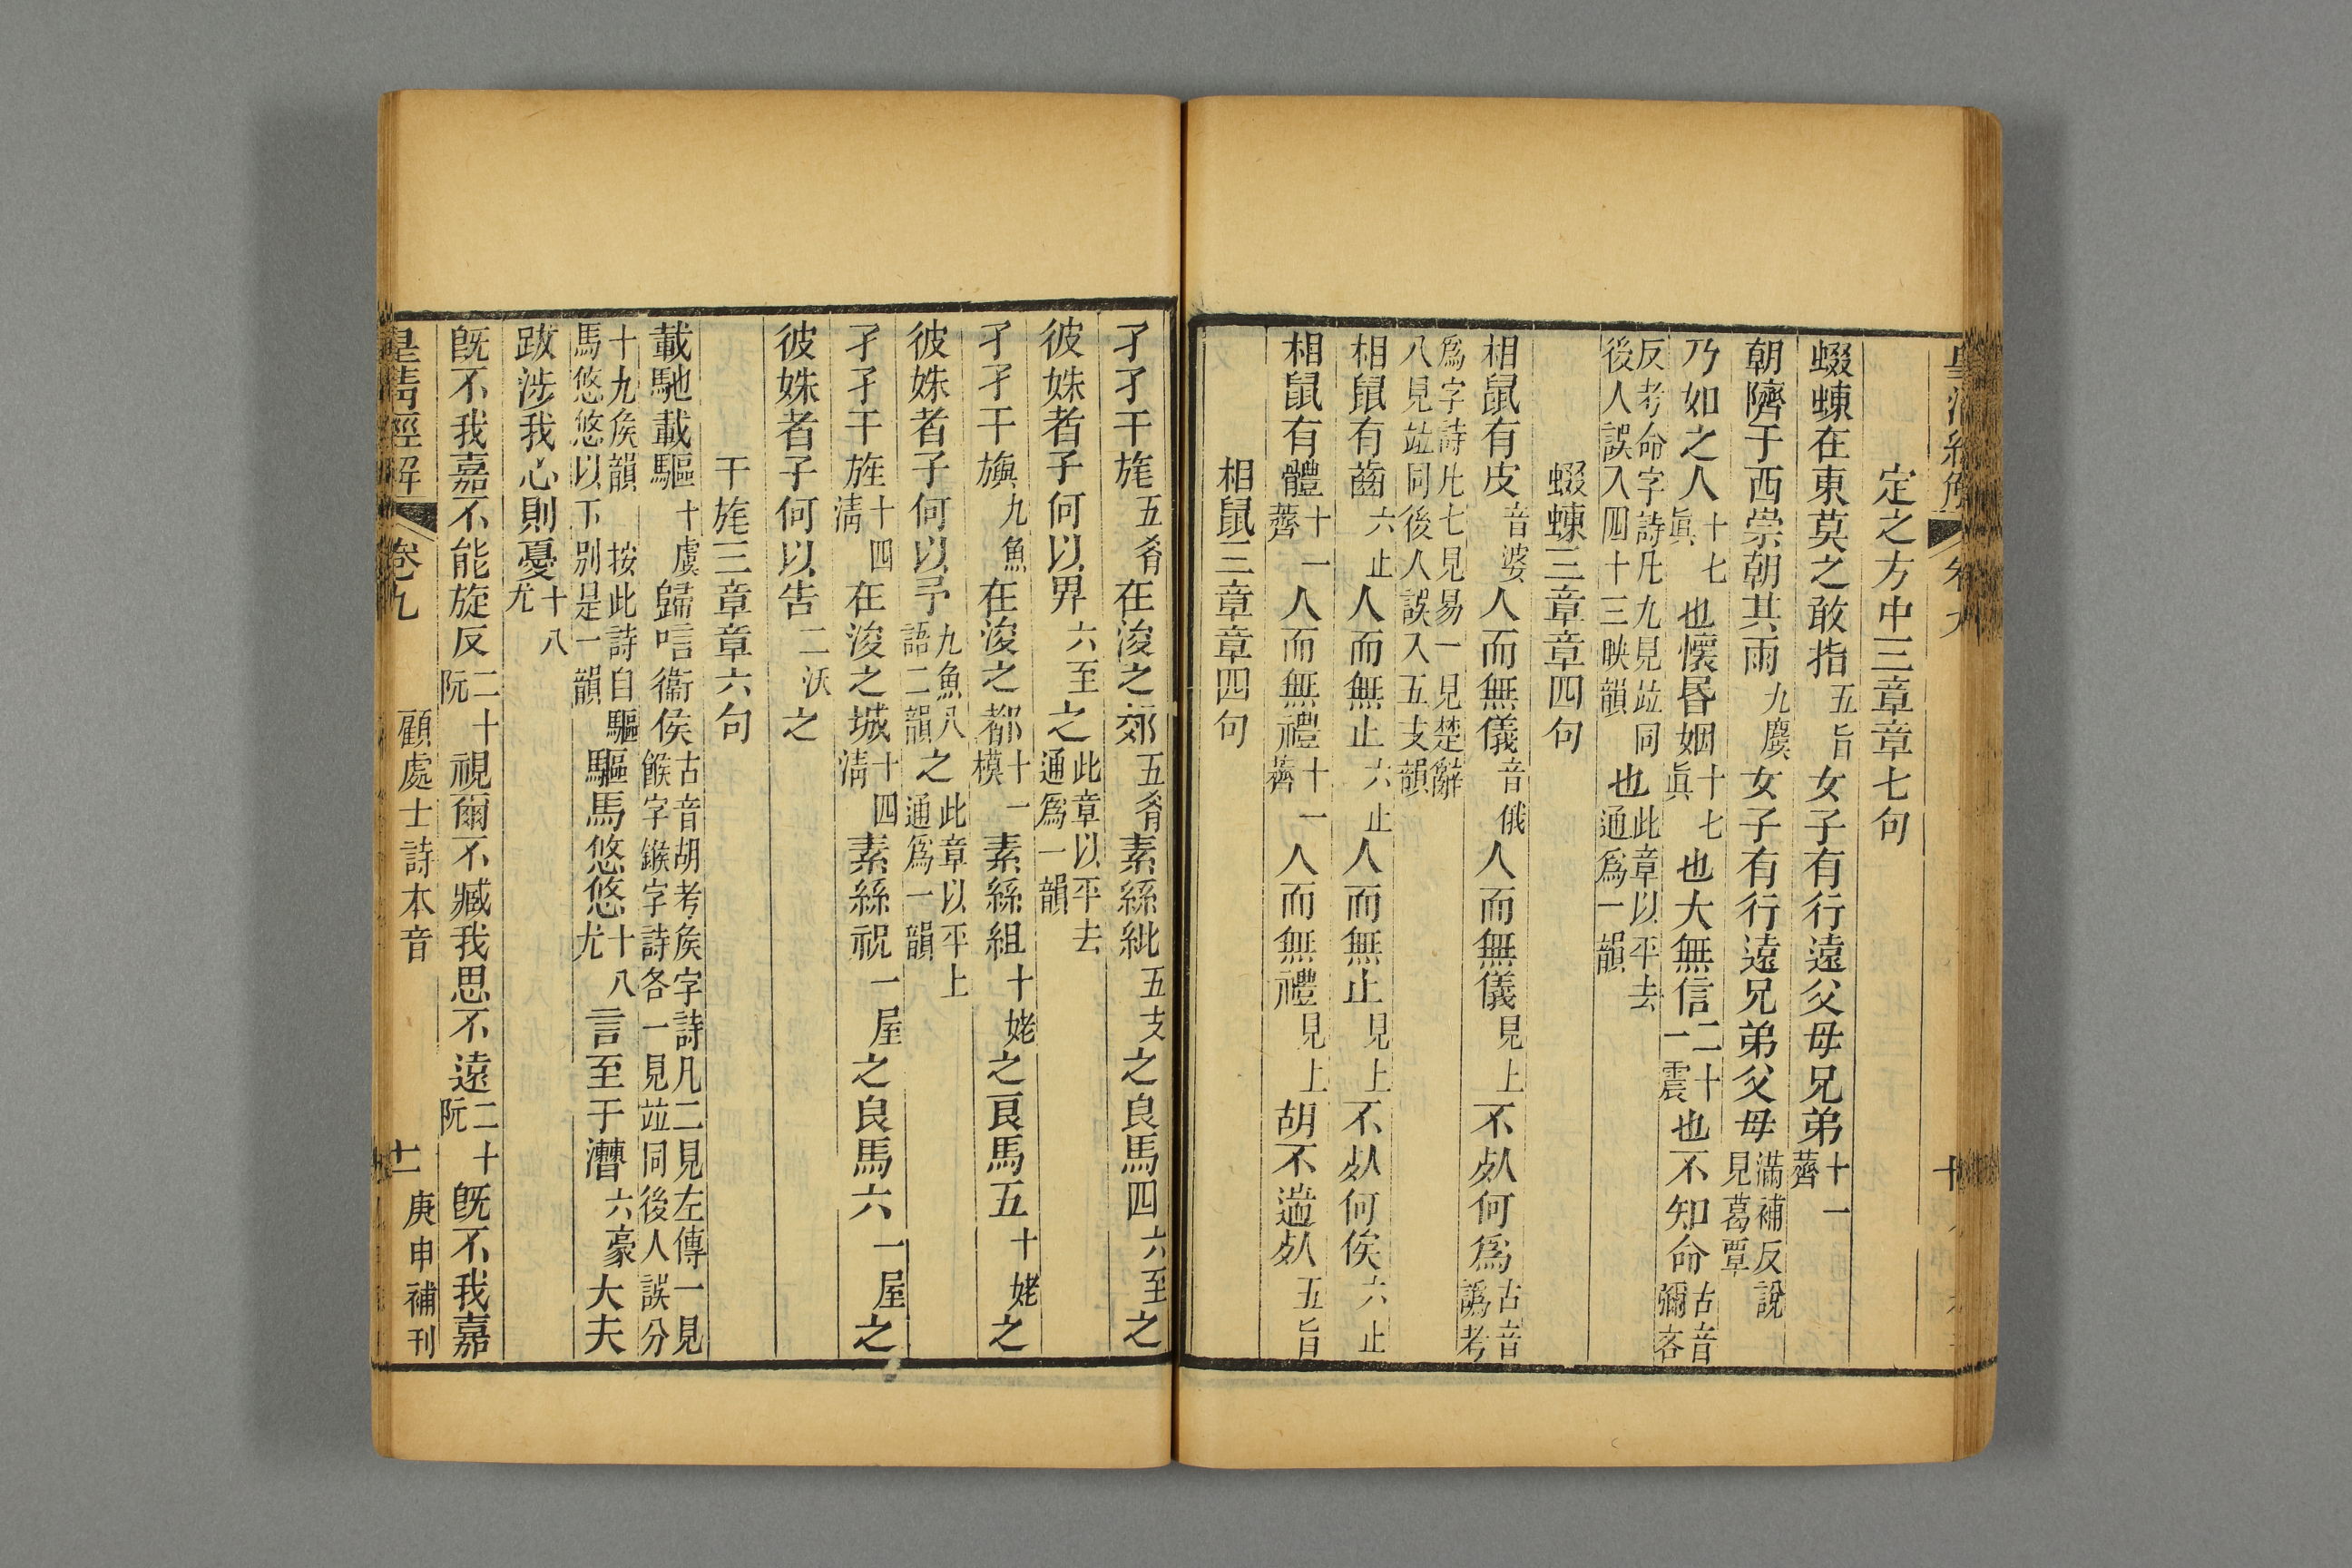 定之方中三章章七句
蝃蝀在東莫之敢指五旨女子有行遠父母兄弟十一薺
朝隮于西崇朝其雨九麌女子有行遠兄弟父母滿補反說見葛覃
乃如之人十七眞也懷昏姻十七眞也大無信二十一震也不知命古音彌吝
反考命字詩凡九見竝同後人誤入四十三映韻也此章以平去通爲一韻
蝃蝀三章章四句
相鼠有皮音婆人而無儀音俄人而無儀見上不𣦸何爲古音譌考
爲字詩凡七見易一見楚辭八見竝同後人誤入五支韻
相鼠有齒六止人而無止六止人而無止見上不𣦸何俟六止
相鼠有體十一薺人而無禮十一薺人而無禮見上胡不遄𣦸五旨
相鼠三章章四句
孑孑干旄五肴在浚之郊五肴素絲紕五支之良馬四六至之
彼姝者子何以畀六至之此章以平去通爲一韻
孑孑干旟九魚在浚之都十一模素絲組十姥之良馬五十姥之
彼姝者子何以予九魚八語二韻之此章以平上通爲一韻
孑孑干旌十四清在浚之城十四清素絲祝一屋之良馬六一屋之
彼姝者子何以告二沃之
干旄三章章六句
載馳載驅十虞歸唁衞侯古音胡考矦字詩凡二見左傳一見餱字鍭字詩各一見竝同後人誤分
十九矦韻 按此詩自驅馬悠悠以下別是一韻驅馬悠悠十八尤言至于漕六豪大夫
跋涉我心則憂十八尤
旣不我嘉不能旋反二十阮視爾不臧我思不遠二十阮旣不我嘉
皇清經解 卷九 顧處士詩本音 十一 庚申補刊